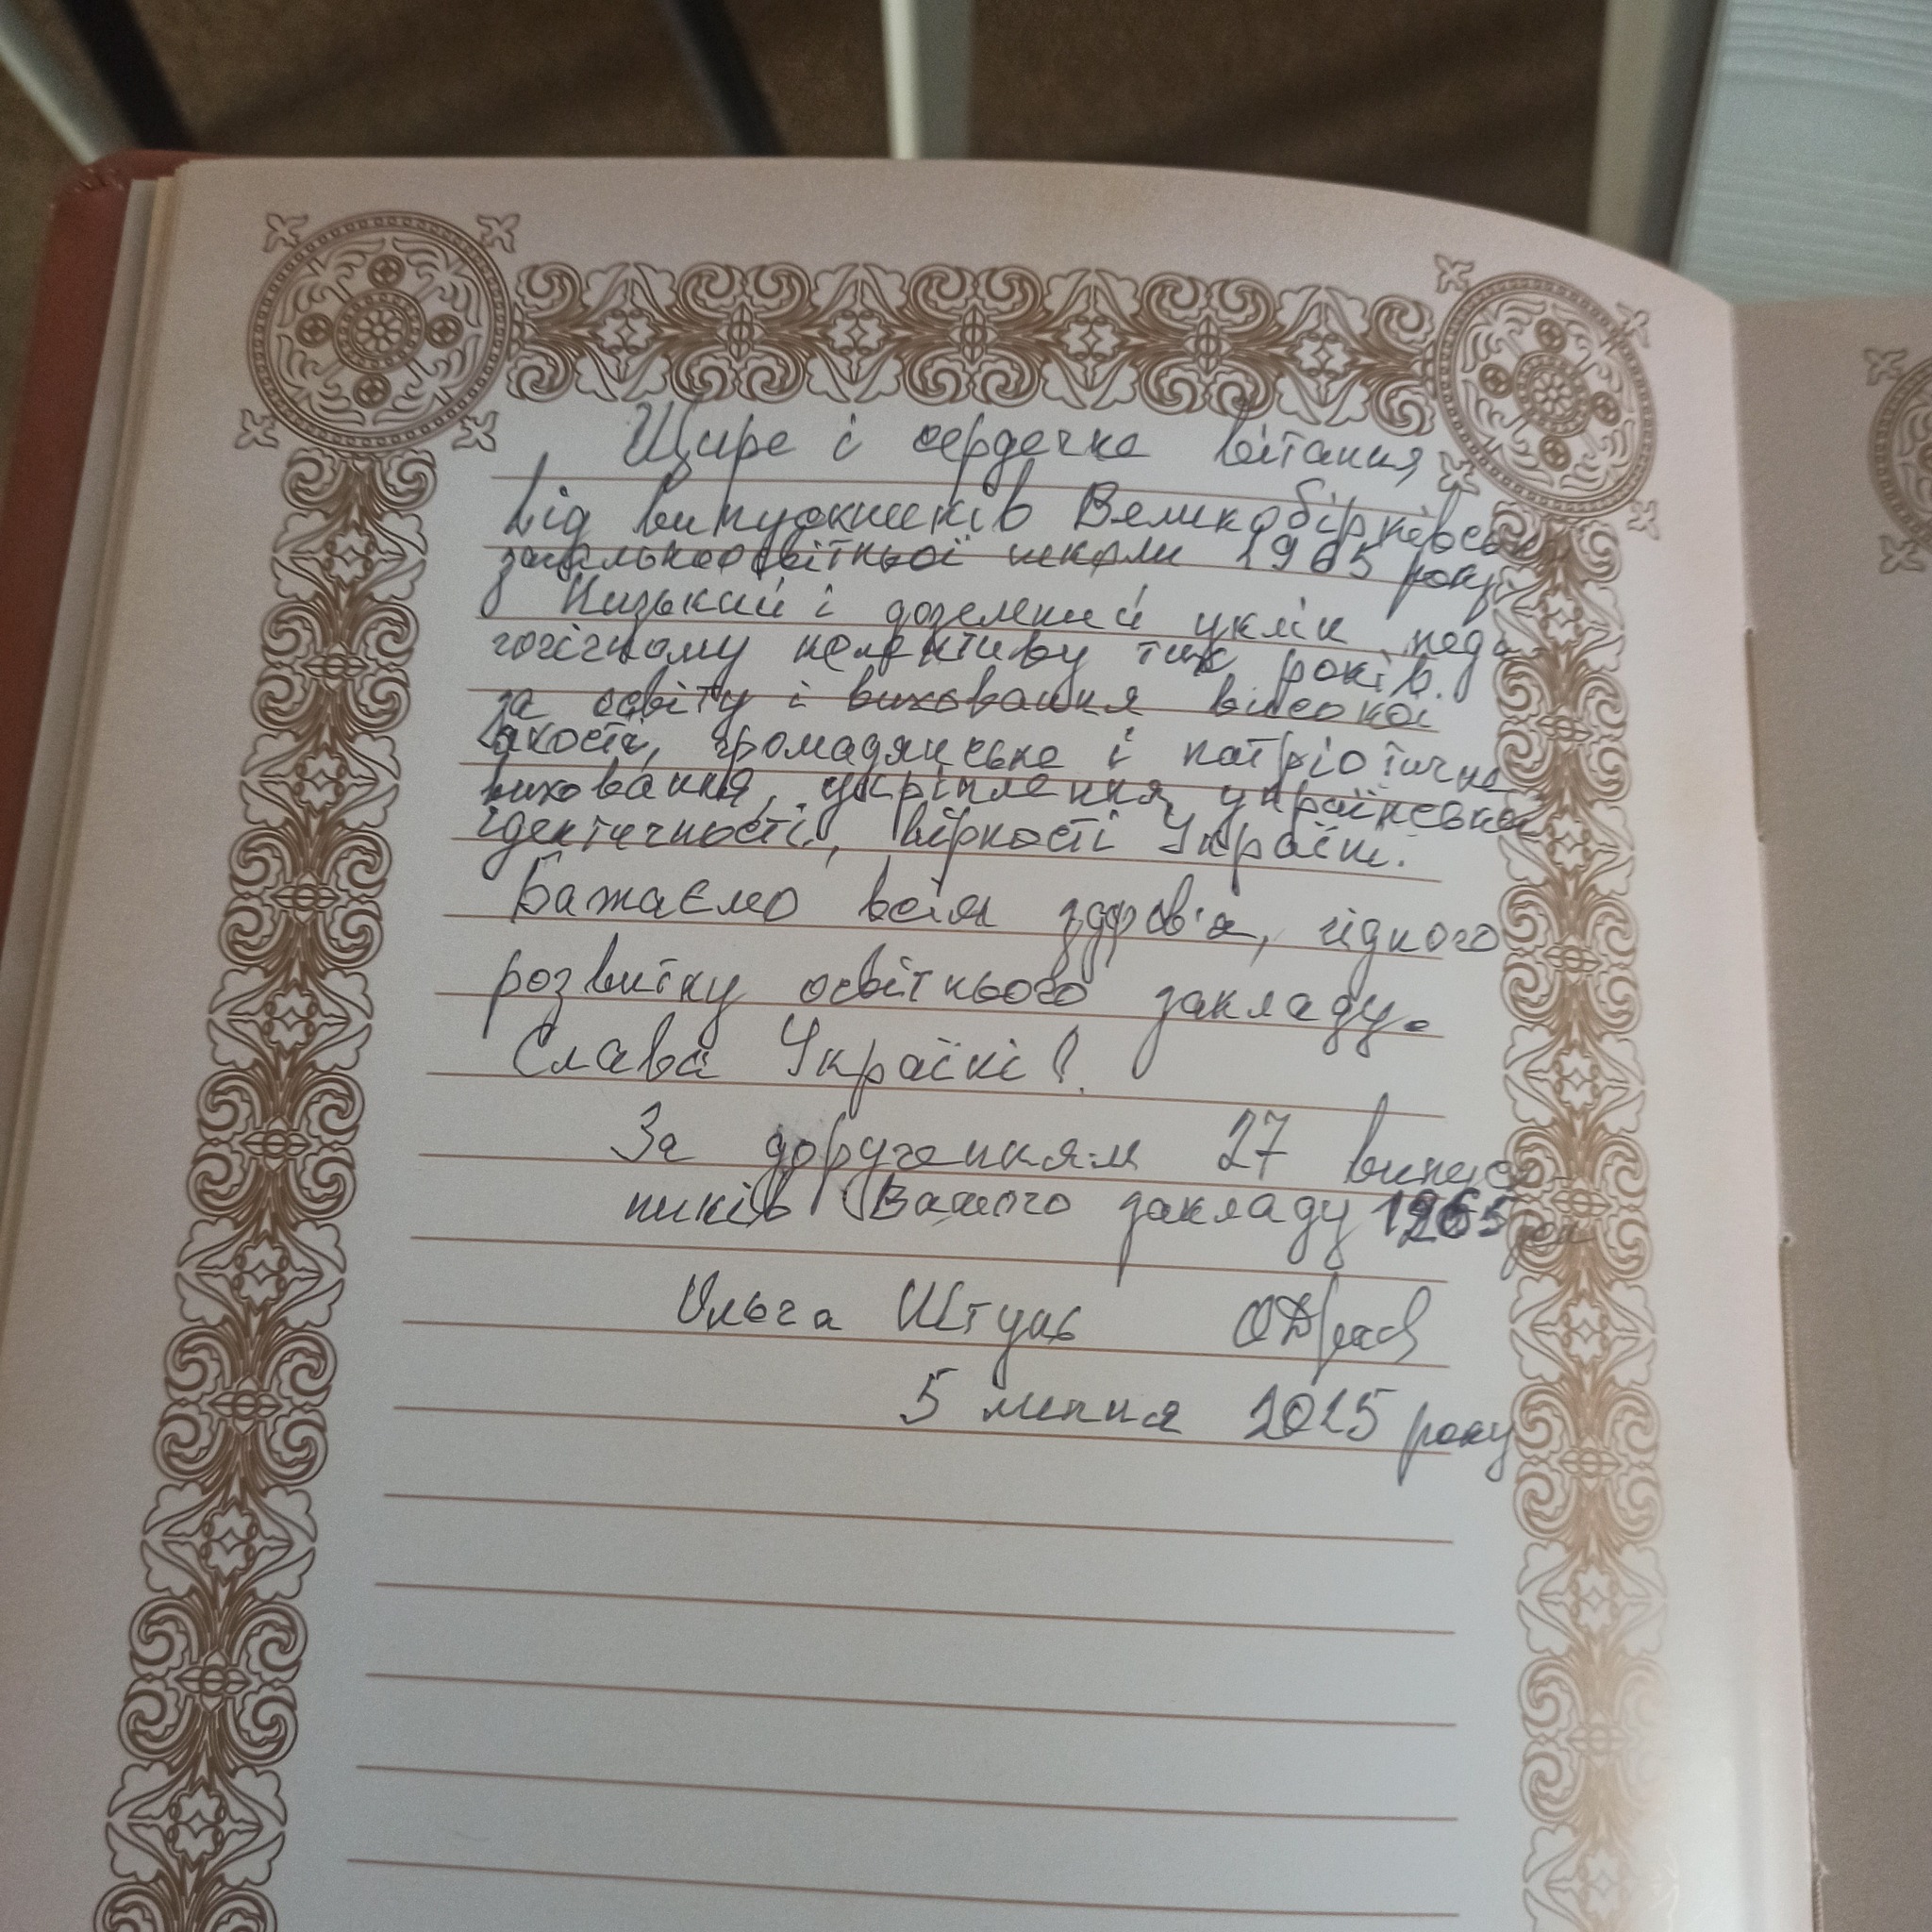 Щире і сердечне вітання
від випускників Великобірківської
загальноосвітньої школи 1965 року.
Низький і доземний уклін педа-
гогічному колективу тих років.
за освіту і виховання високої
якості, громадянське і патріотичне
виховання, укріплення української
ідентичності, вірності Україні.
Бажаємо всім здоров'я, гідного
розвитку освітнього закладу.
Слава Україні!
За дорученням 27 випуск-
ників Вашого закладу 1965
Ольга
5 липня 2025 року